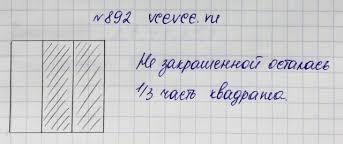 №892 vcevce.ru
Не закрашенной осталась
1/3 часть квадрата.